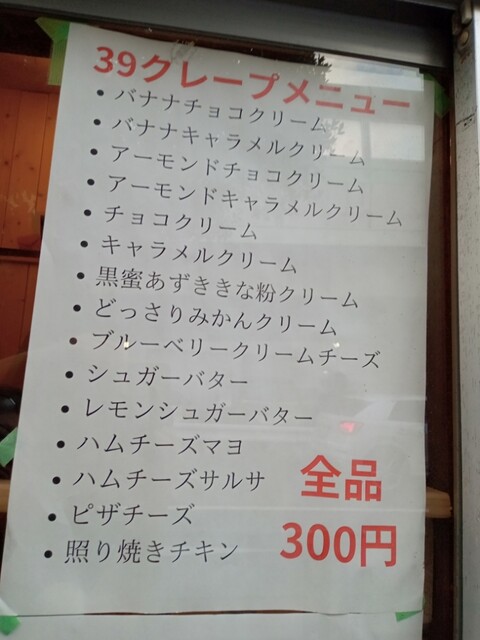 39クレープメニュー
・バナナチョコクリーム
・バナナキャラメルクリーム
・アーモンドチョコクリーム
・アーモンドキャラメルクリーム
・チョコクリーム
・キャラメルクリーム
・黒蜜あずききな粉クリーム
・どっさりみかんクリーム
・ブルーベリークリームチーズ
・シュガーバター
・レモンシュガーバター
・ハムチーズマヨ
・ハムチーズサルサ
・ピザチーズ
・照り焼きチキン
全品
300円